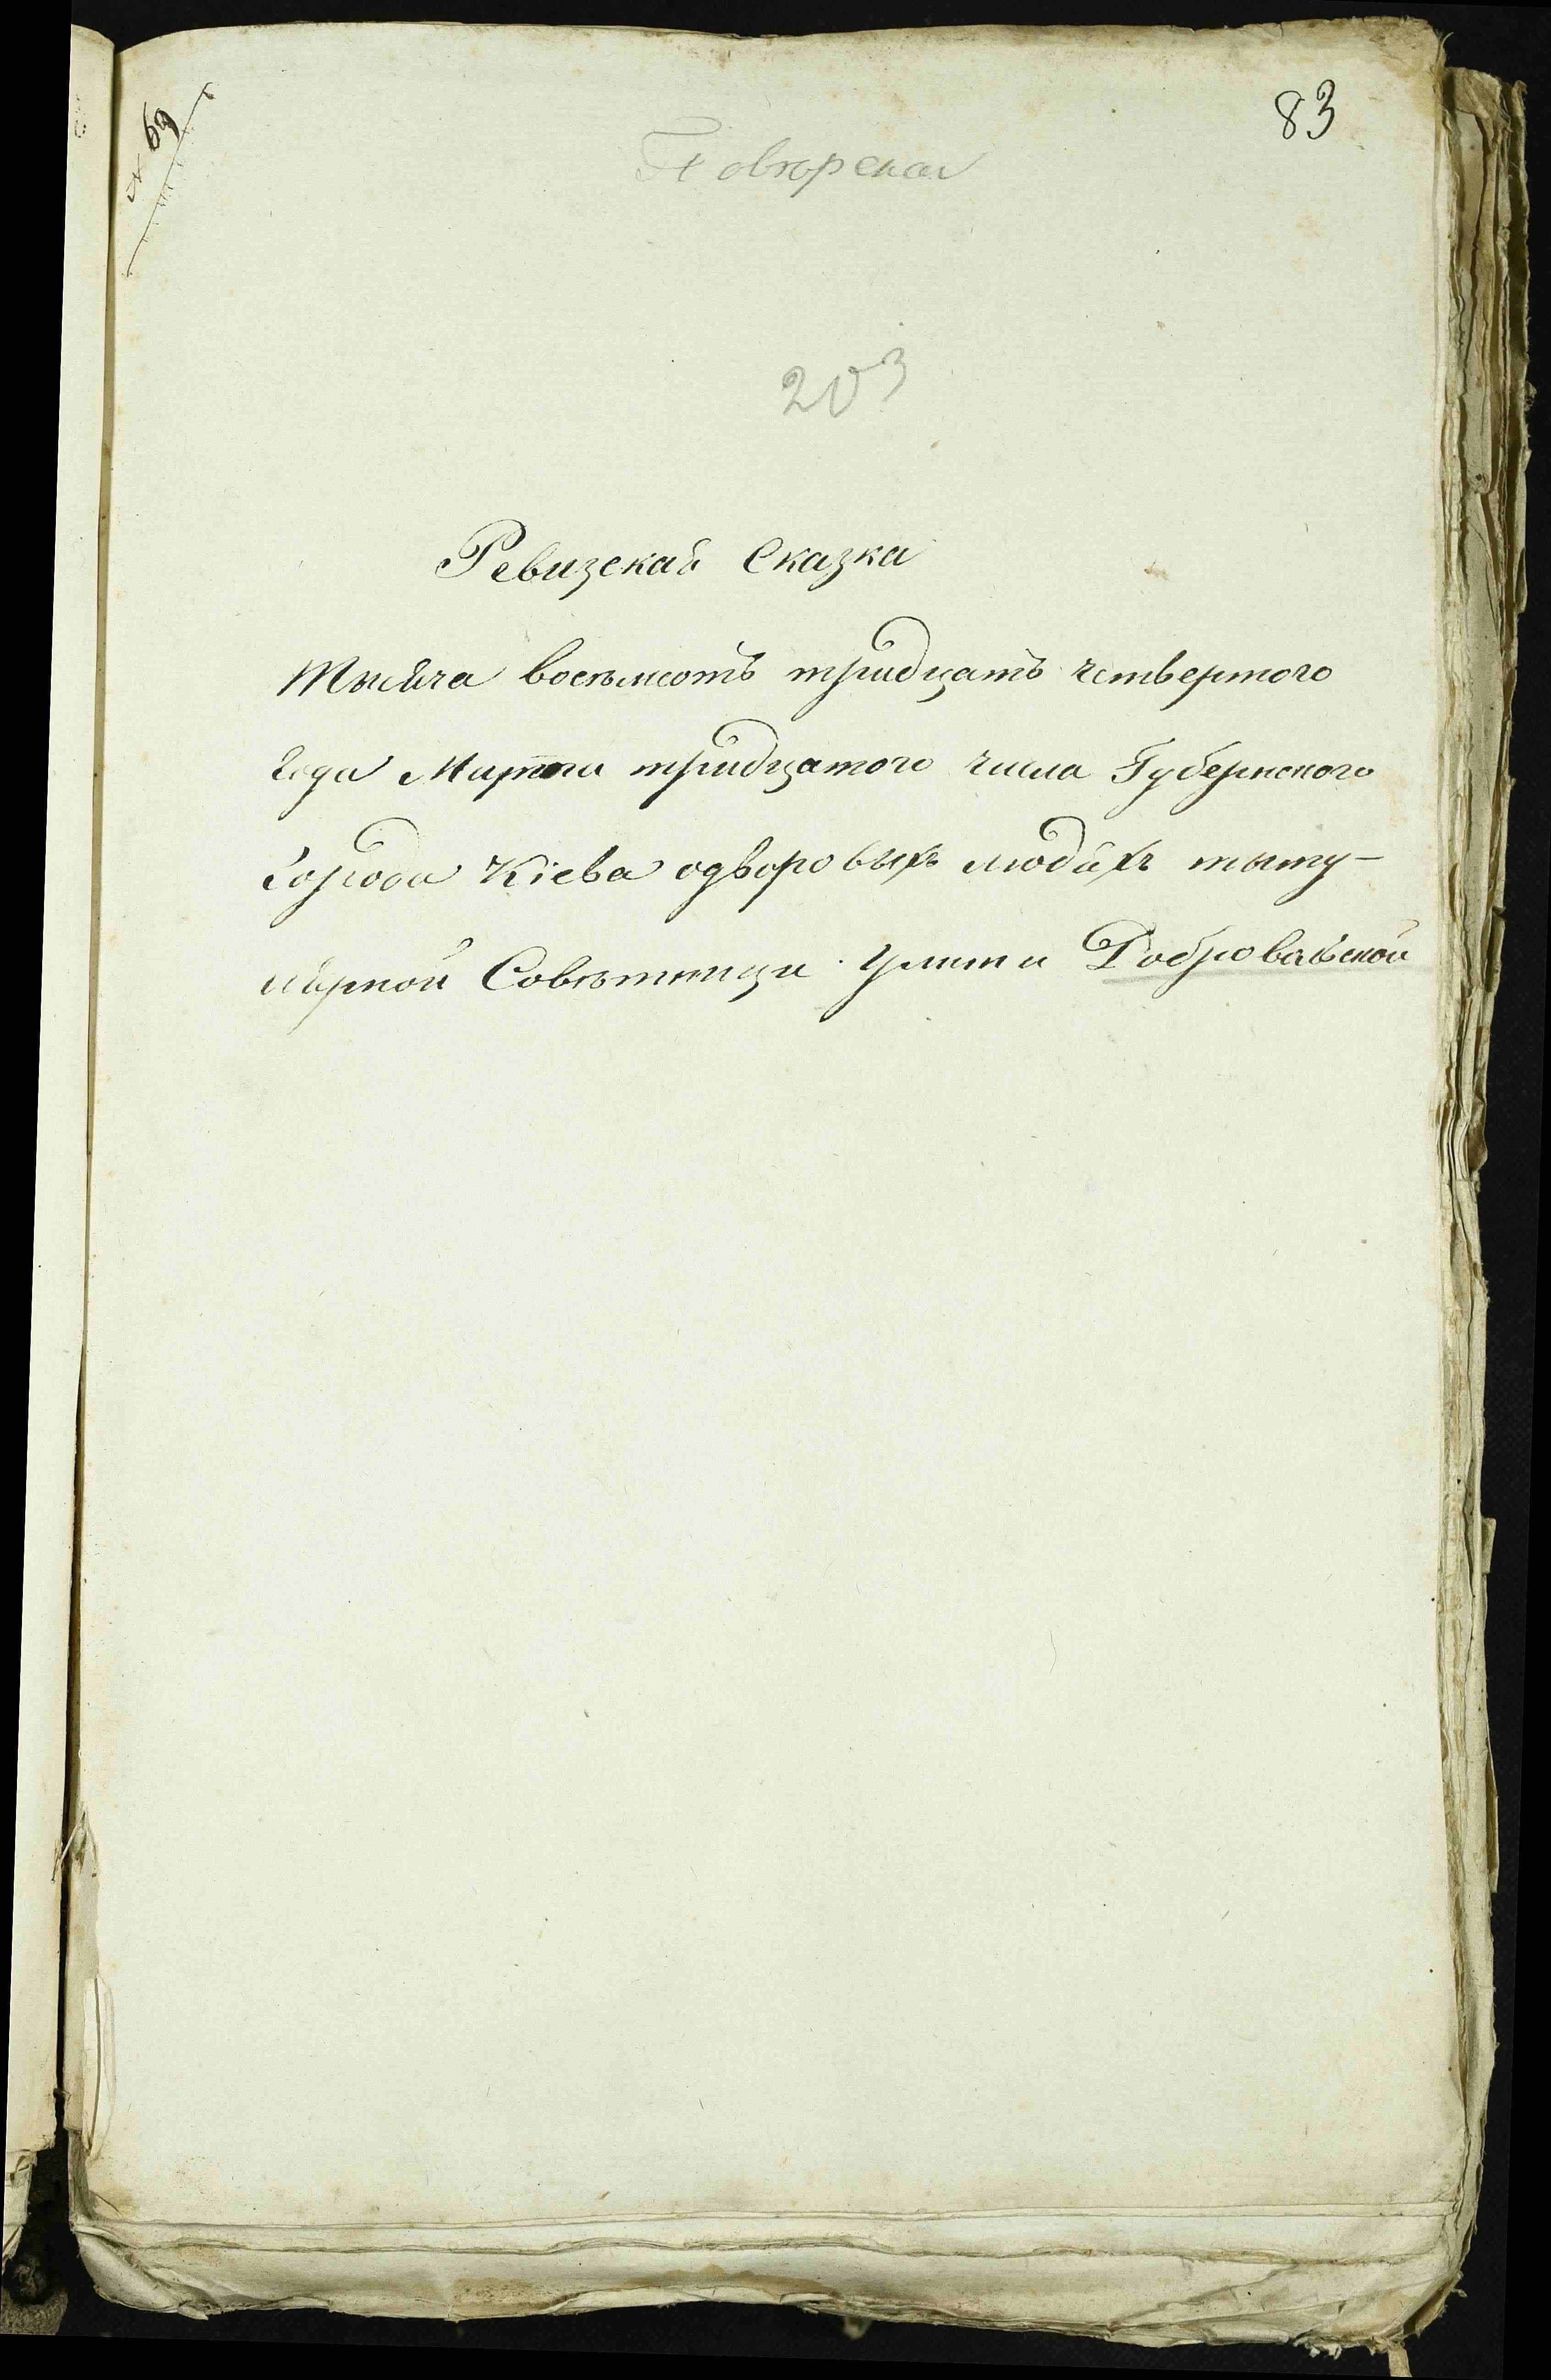 № 69
83
203
Ревизскаѣ Сказка
Тысѣча восемьсотъ тридцать четвертого
года Марта тридцатого числа Губернского
города Кіева одворовыхъ людѣхъ титу-
лѣрной Совѣтници Улити Добровольской